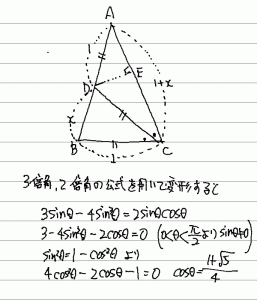 A
1
D
E
1+x
x
B
1
C
3倍角,2倍角の公式を用いて変形すると
3sinθ-4sin³θ=2sinθcosθ
3-4sin²θ-2cosθ=0 (0<θ<π/2より sinθ≠0)
sin²θ=1-cos²θ より
4cos²θ-2cosθ-1=0 cosθ=(1+√5)/4